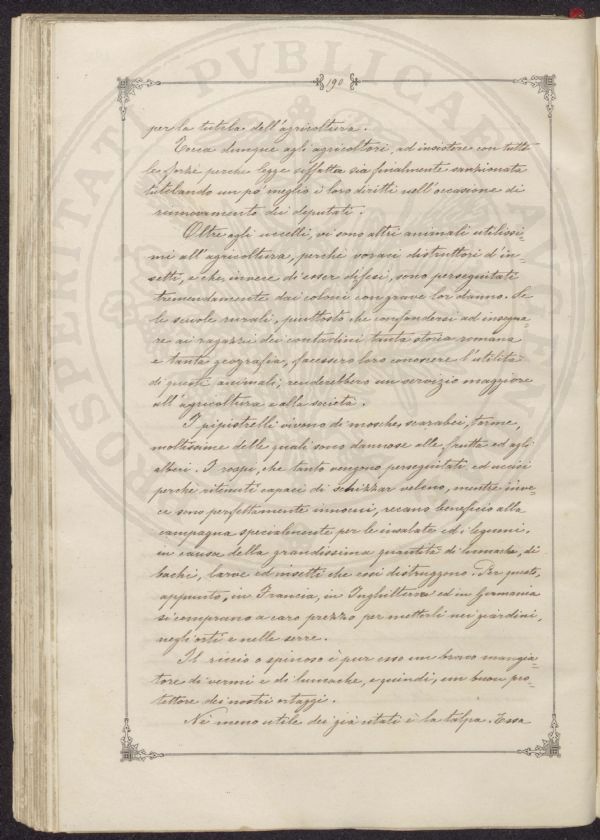 190
per la tutela dell'agricoltura.
Tocca dunque agli agricoltori, ad insistere con tutte
le forze perchè legge siffatta sia finalmente sanzionata
tutelando un po' meglio i loro diritti nell'occasione di
rinnovamento dei deputati.
Oltre agli uccelli, vi sono altri animali utilissi-
mi all'agricoltura, perchè voraci distruttori d'in-
setti, e che, invece di esser difesi, sono perseguitati
tremendamente dai coloni con grave lor danno. Se
le scuole rurali, piuttosto che confondersi ad insegna-
re ai ragazzi dei contadini tanta storia romana
e tanta geografia, facessero loro conoscere l'utilità
di questi animali, renderebbero un servizio maggiore
all'agricoltura e alla società.
I pipistrelli vivono di mosche, scarabei, tarme,
moltissime delle quali sono dannose alle frutta ed agli
alberi. I rospi, che tanto vengono perseguitati ed uccisi
perchè ritenuti capaci di schizzar veleno, mentre inve-
ce sono perfettamente innocui, recano beneficio alla
campagna specialmente per le insalate ed i legumi,
in causa della grandissima quantità di lumache, di
bachi, larve ed insetti che essi distruggono. Per questo,
appunto, in Francia, in Inghilterra ed in Germania
si comprano a caro prezzo per metterli nei giardini,
negli orti e nelle serre.
Il riccio o spinoso è pur esso un bravo mangia-
tore di vermi e di lumache, e quindi, un buon pro-
tettore dei nostri ortaggi.
Nè meno utile dei già citati è la talpa. Essa